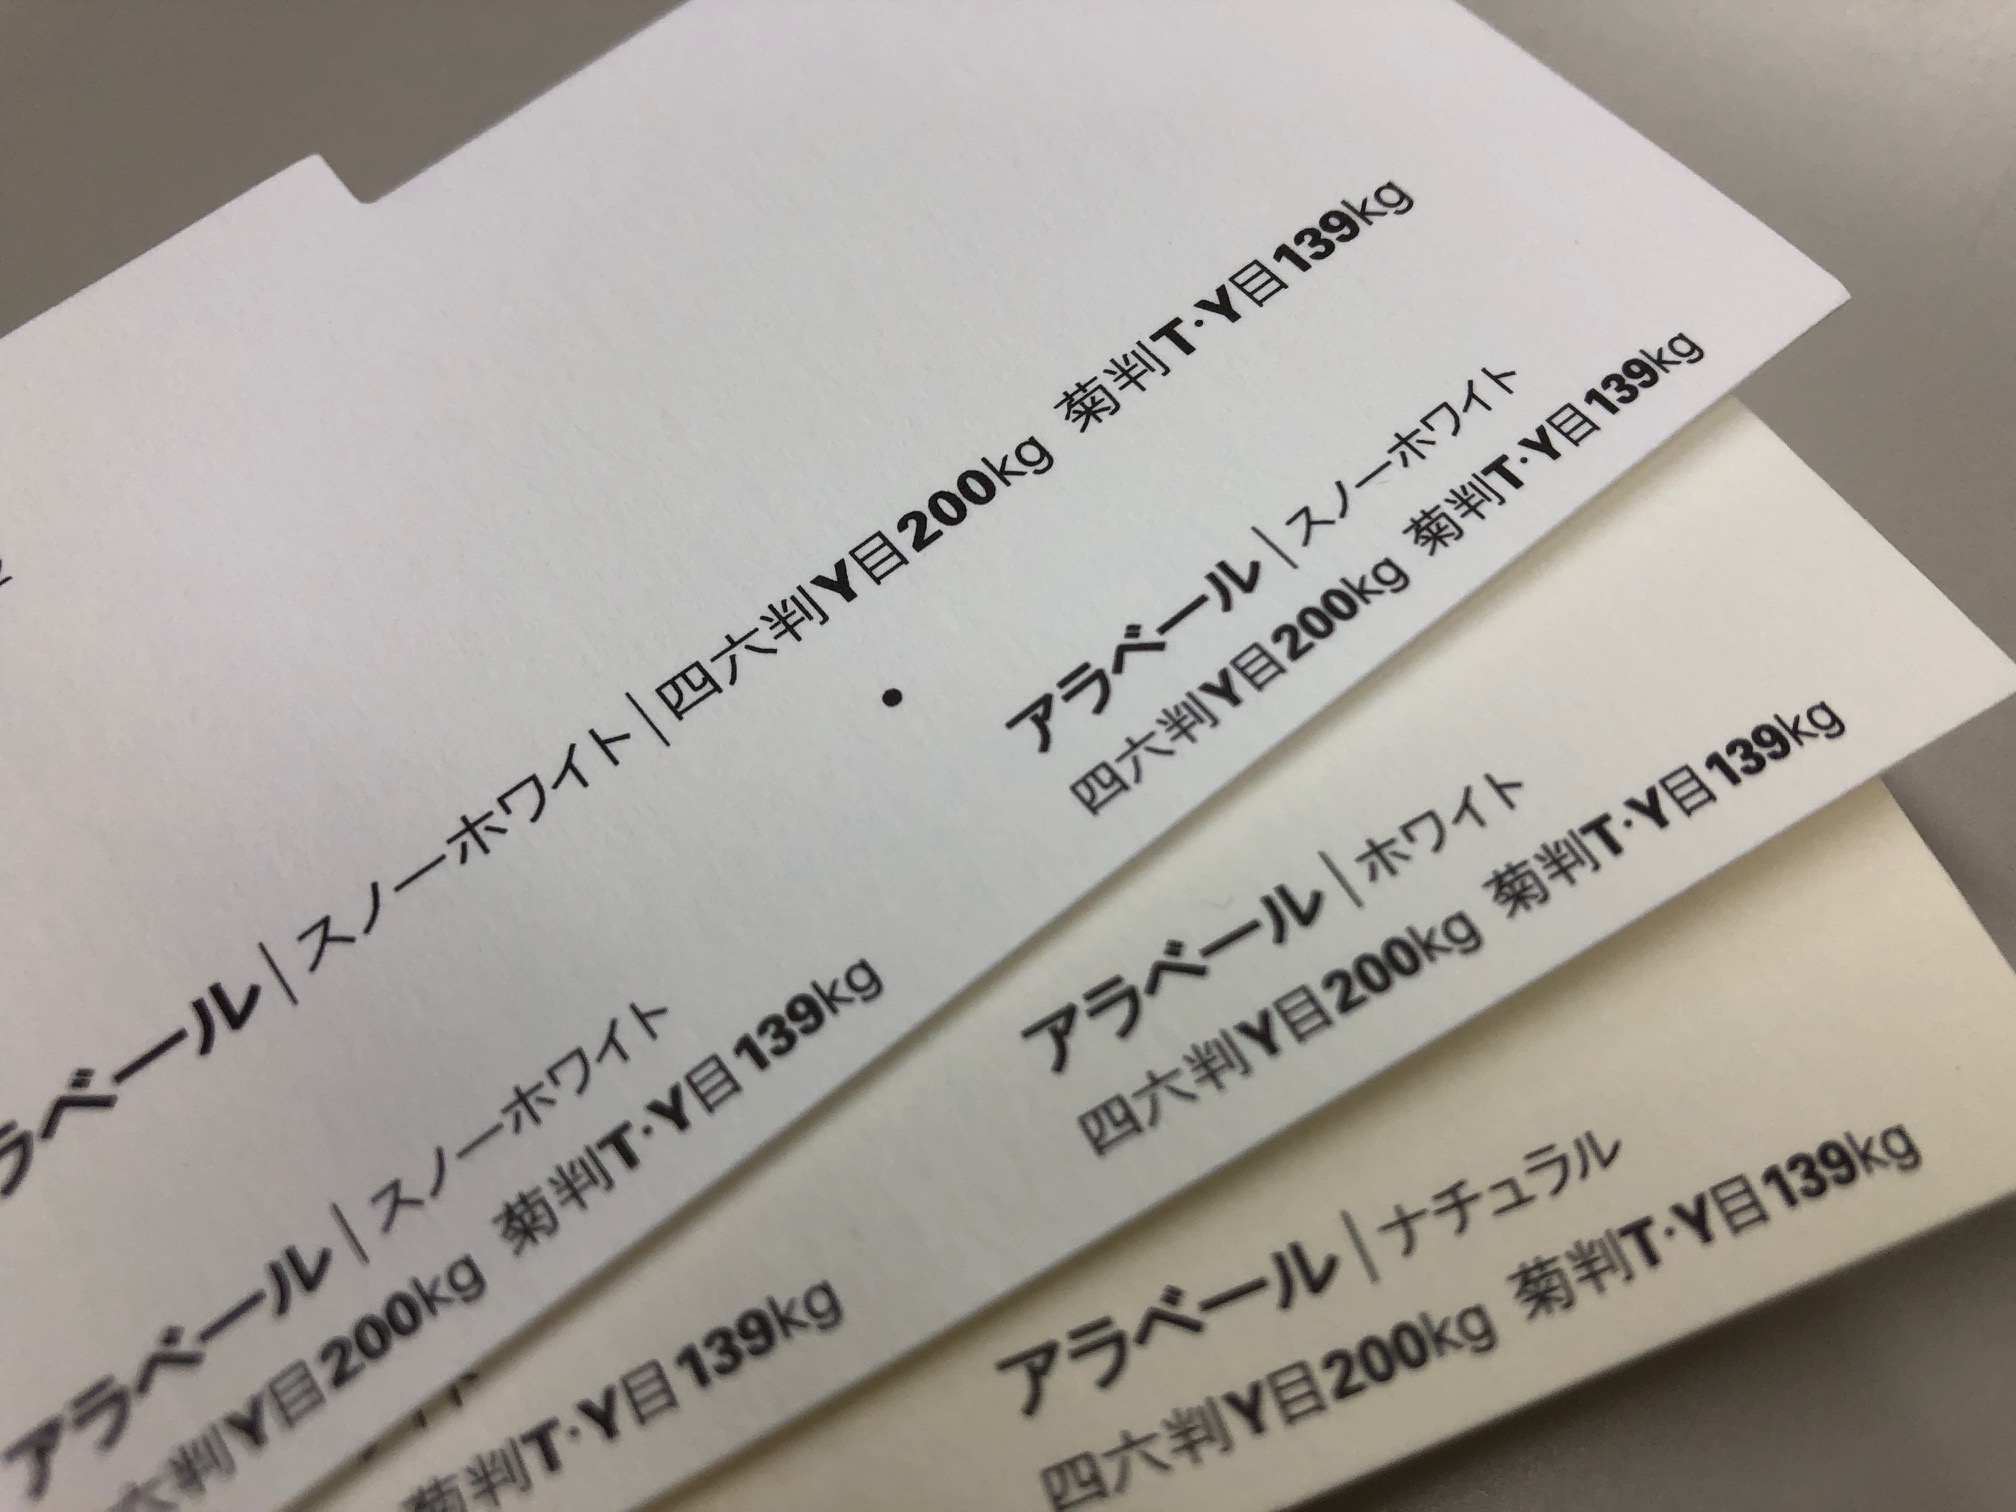 アラベール｜スノーホワイト｜四六判Y目200kg 菊判T・Y目139kg
アラベール｜スノーホワイト
四六判Y目200kg 菊判T・Y目139kg
アラベール｜スノーホワイト
六判Y目200kg 菊判T・Y目139kg
アラベール｜ホワイト
四六判Y目200kg 菊判T・Y目139kg
イト
菊判T・Y目139kg
アラベール｜ナチュラル
四六判Y目200kg 菊判T・Y目139kg